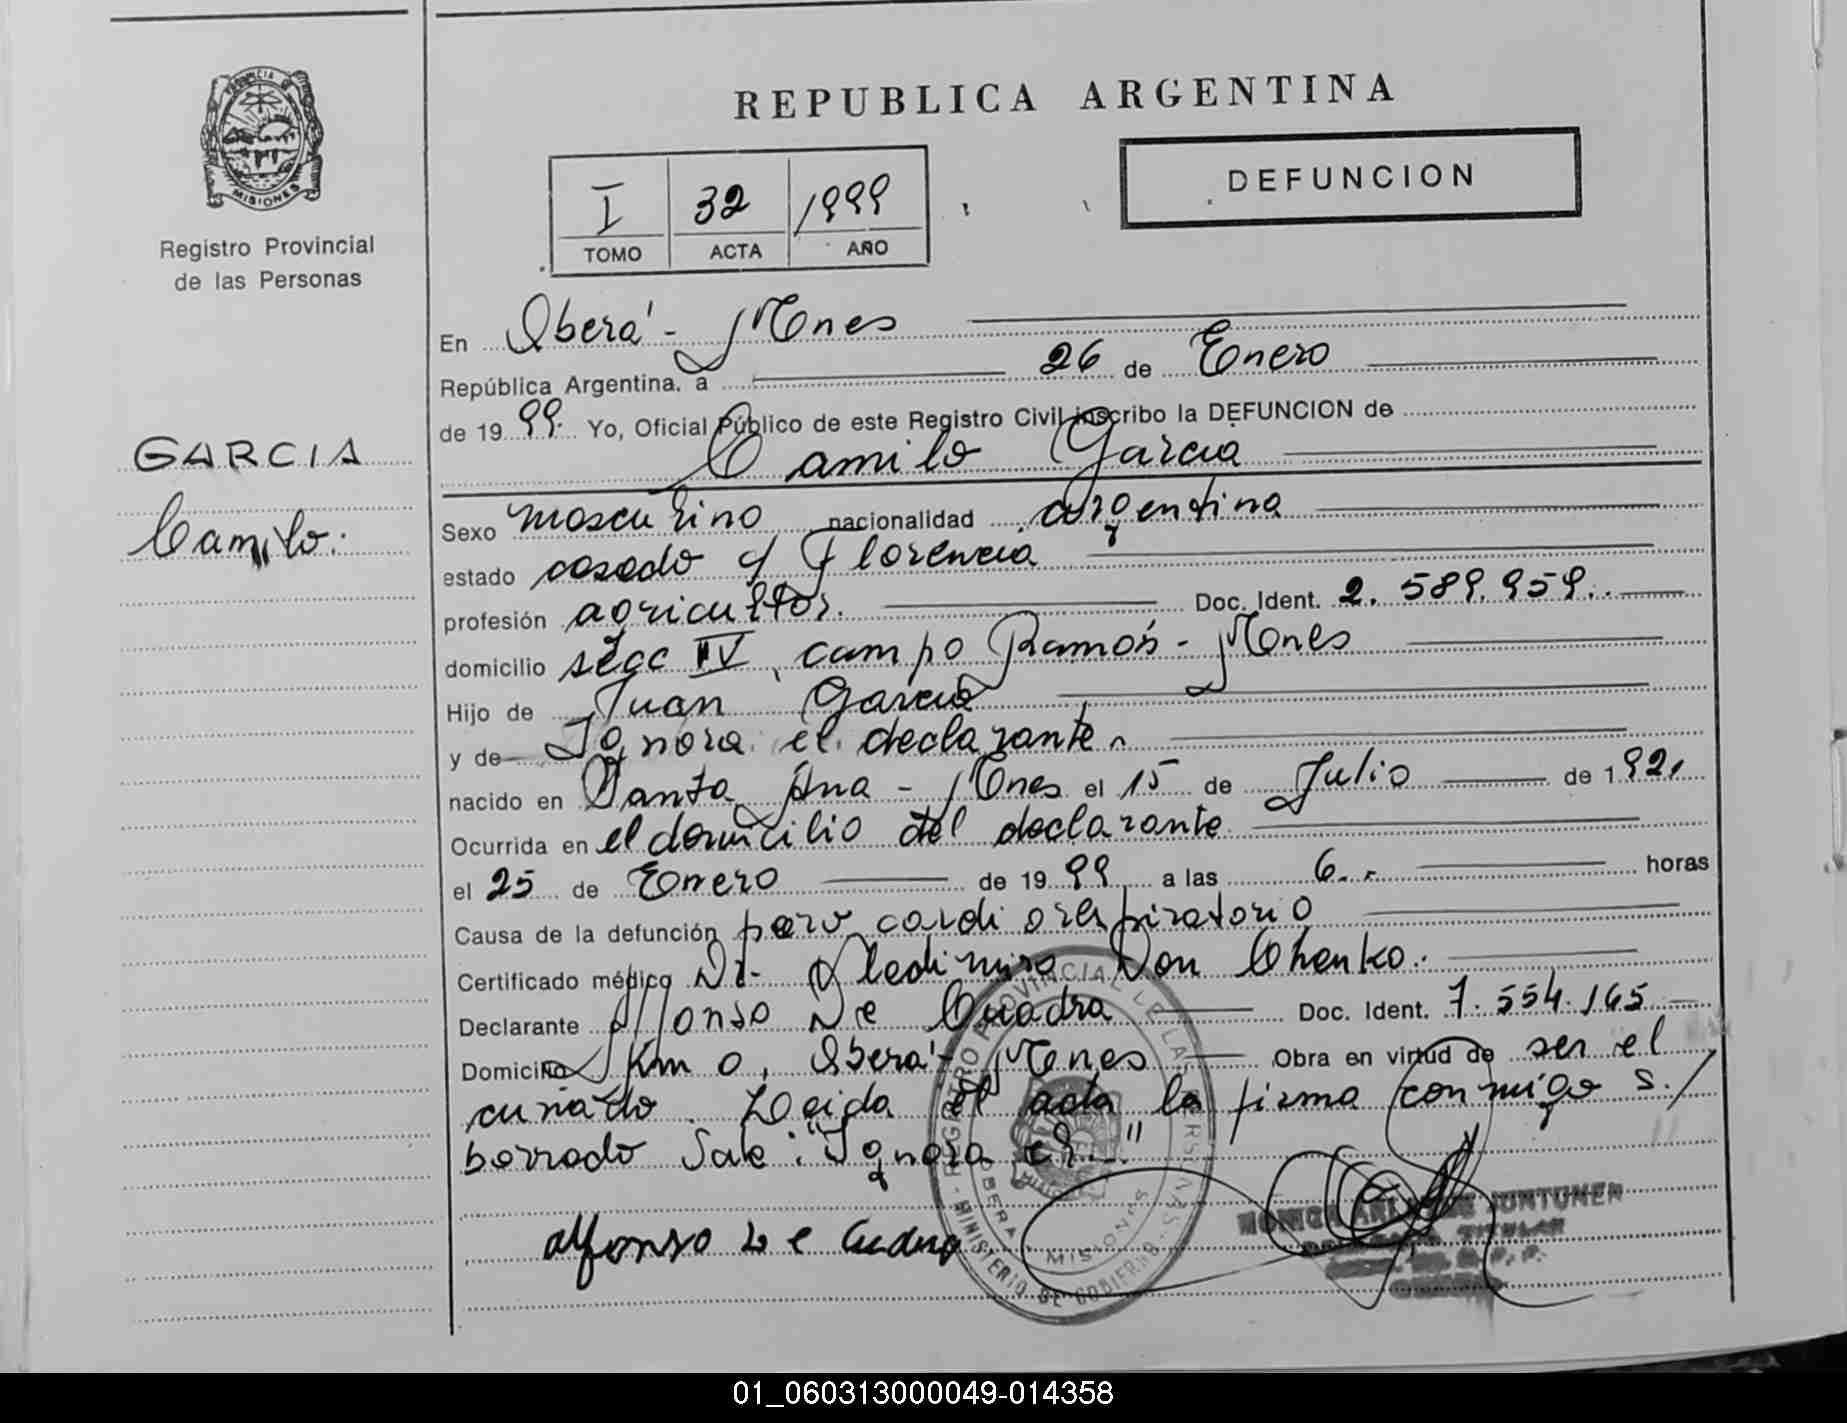 PROVINCIA DE
MISIONES
Registro Provincial
de las Personas
GARCIA
Camilo.
REPUBLICA ARGENTINA
I 32 1999
TOMO ACTA AÑO
DEFUNCION
En Oberá - Mnes
República Argentina, a 26 de Enero
de 1999. Yo, Oficial Público de este Registro Civil inscribo la DEFUNCION de
Camilo Garcia
Sexo masculino nacionalidad argentina
estado casado c/ Florencia
profesión agricultor. Doc. Ident. 2.589.959.
domicilio secc IV, campo Ramón - Mnes
Hijo de Juan Garcia
y de Ignora el declarante.
nacido en Santa Ana - Mnes el 15 de Julio de 1921
Ocurrida en el domicilio del declarante
el 25 de Enero de 1999 a las 6.- horas
Causa de la defunción paro cardiorespiratorio
Certificado médico Dr. Vladimiro Don Chenko.
Declarante Alfonso De Cuadra Doc. Ident. 7.554.165
Domicilio Km 0, Oberá - Mnes Obra en virtud de ser el
cuñado. Leida el acta la firma conmigo S./
borrado Vale: "Ignora el..."
alfonso de Cuadra
REGISTRO PROVINCIAL DE LAS PERSONAS - MINISTERIO DE GOBIERNO -
OBERA MISIONES
JUNTUNEN
TITULAR
01_060313000049-014358